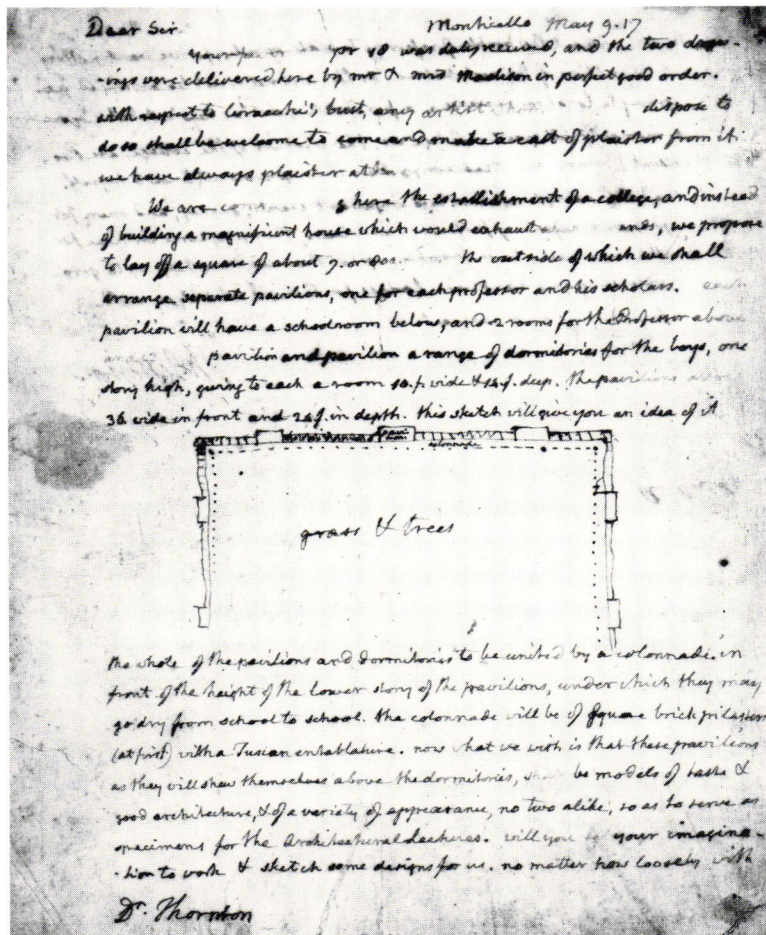 Dear Sir Monticello May 9. 17
was duly recieved, and the two draw-
-ings were delivered here by mr & mrs Madison in perfect good order.
with respect to Ceracchi's bust, any artist dispose to
do so shall be welcome to come and make a cast of plaister from it.
we have always plaister at
We are here the establishment of a college, and instead
of building a magnificent house which would exhaust we propose
to lay off a square of about 7. or 800 the outside of which we shall
arrange separate pavilions, one for each professor and his scholars. each
pavilion will have a schoolroom below, and 2 rooms for the Professor above
pavilion and pavilion a range of dormitories for the boys, one
story high, giving to each a room 10. f. wide & 14. f. deep. the pavilions
36 wide in front and 24 f. in depth. this sketch will give you an idea of it
colonnade
grass & trees
the whole of the pavilions and dormitories to be united by a colonnade in
front of the height of the lower story of the pavilions, under which they may
go dry from school to school. the colonnade will be of square brick pilasters
(at first) with a Tuscan entablature. now what we wish is that these pavilions
as they will shew themselves above the dormitories, be models of taste &
good architecture, & of a variety of appearance, no two alike, so as to serve as
specimens for the Architectural lectures. will you your imagina-
-tion to work & sketch some designs for us. no matter how loosely with
Dr. Thornton